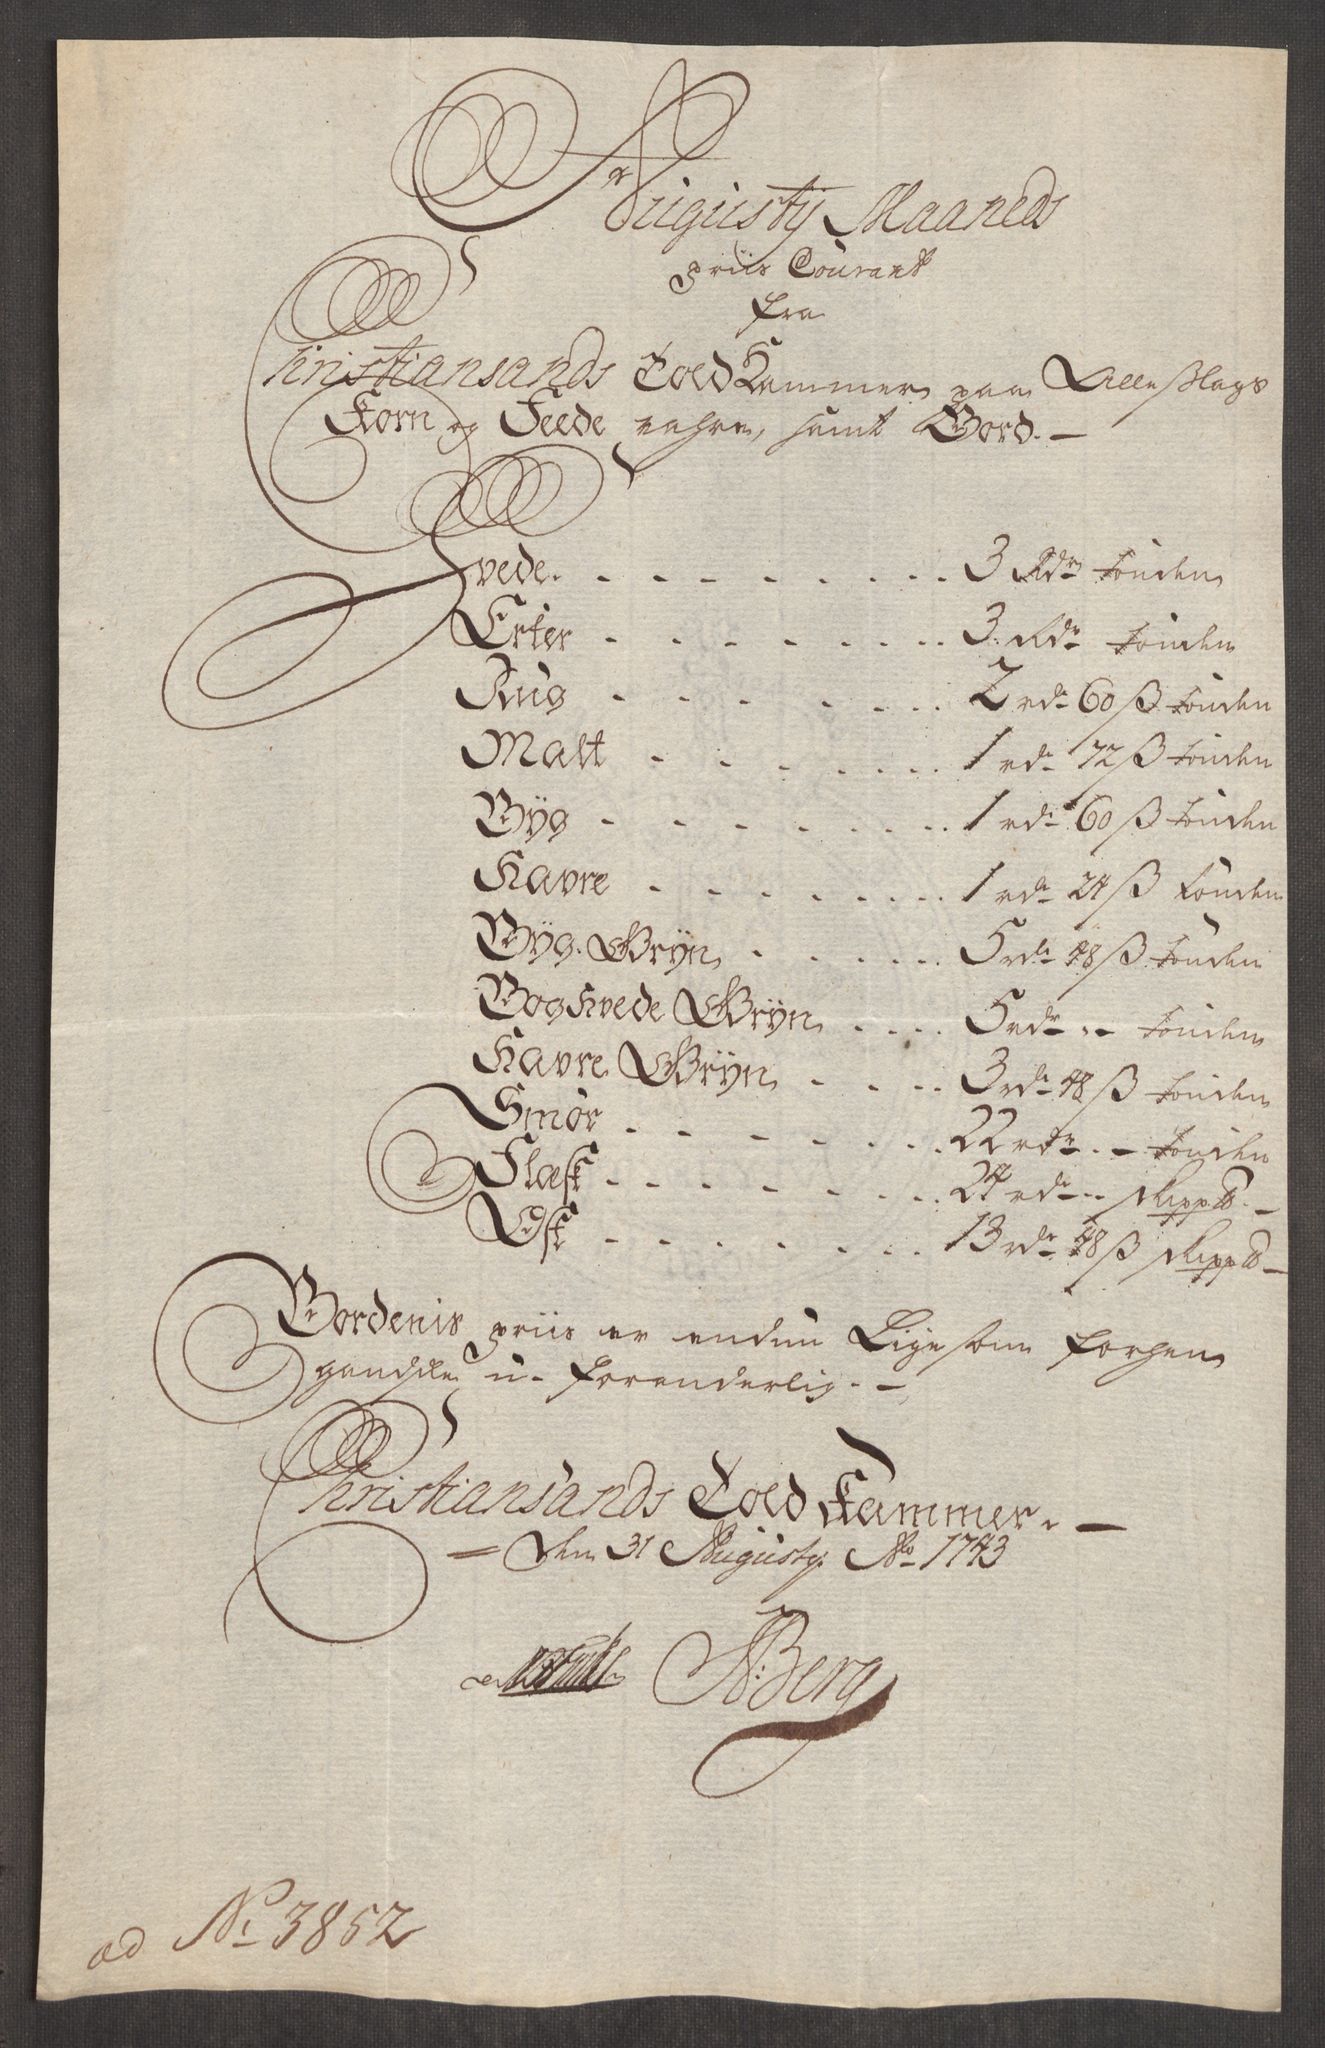 Augustÿ Maaneds
priis Courant
fra
Christiansands Told Kammer paa Alle Slags
Korn og Feede vahre, samt Bord.
Hvede 3 Rdr Tønden
Erter 3 Rdr Tønden
Rug 2 rdr 60 ß Tønden
Malt 1 rdr 72 ß Tønden
Bÿg 1 rdr 60 ß Tønden
Havre 1 rdr 24 ß Tønden
Bÿg Grÿn 5 rdr 48 ß Tønden
Boghvede Grÿn 5 rdr Tønden
Havre Grÿn 3 rdr 48 ß Tønden
Smør 22 rdr Tønden
Flæsk 24 rdr skipp℔
Ost 13 rdr 48 ß skipp℔
Bordenis priis er endnu Ligesom forhen
u-foranderlig.
Christiansands Told Kammer
Den 31 Augustÿ Ao 1743
A: Berg
ad No 3852